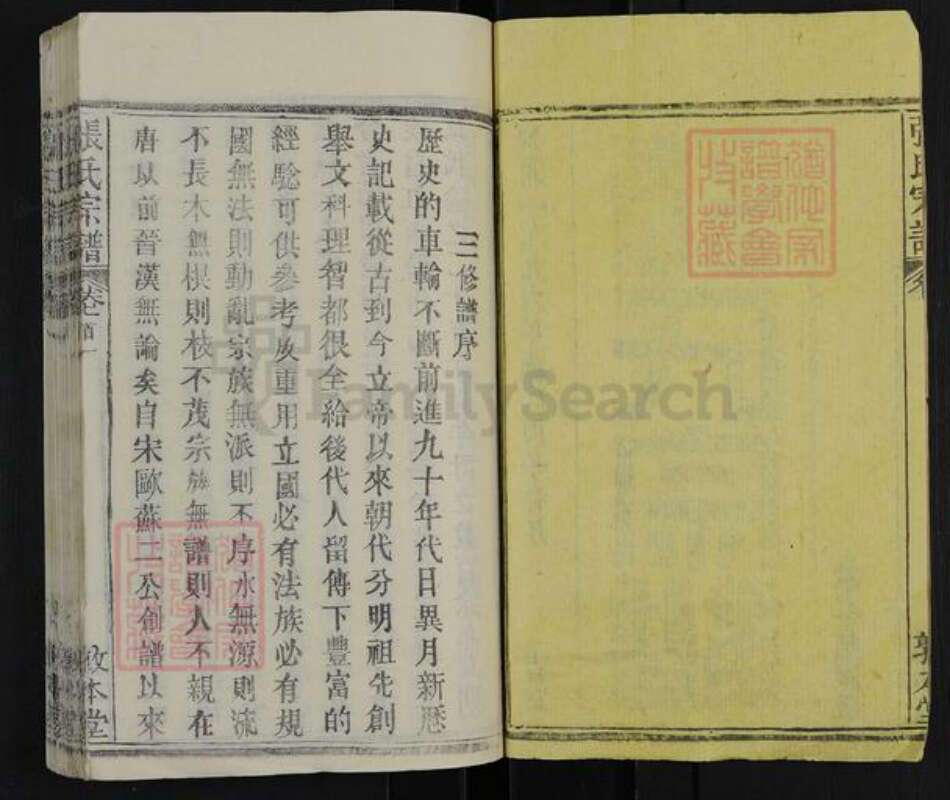 張氏宗譜
三修譜序
歷史的車輪不斷前進九十年代日異月新歷
史記載從古到今立帝以來朝代分明祖先創
舉文科理智都很全給後代人留傳下豐富的
經騐可供參考及重用立國必有法族必有規
國無法則動亂宗族無派則不序水無源則流
不長木無根則枝不茂宗族無譜則人不親在
唐以前晉漢無論矣自宋歐蘇二公創譜以來
張氏宗譜
卷首
一
敦本堂
FamilySearch